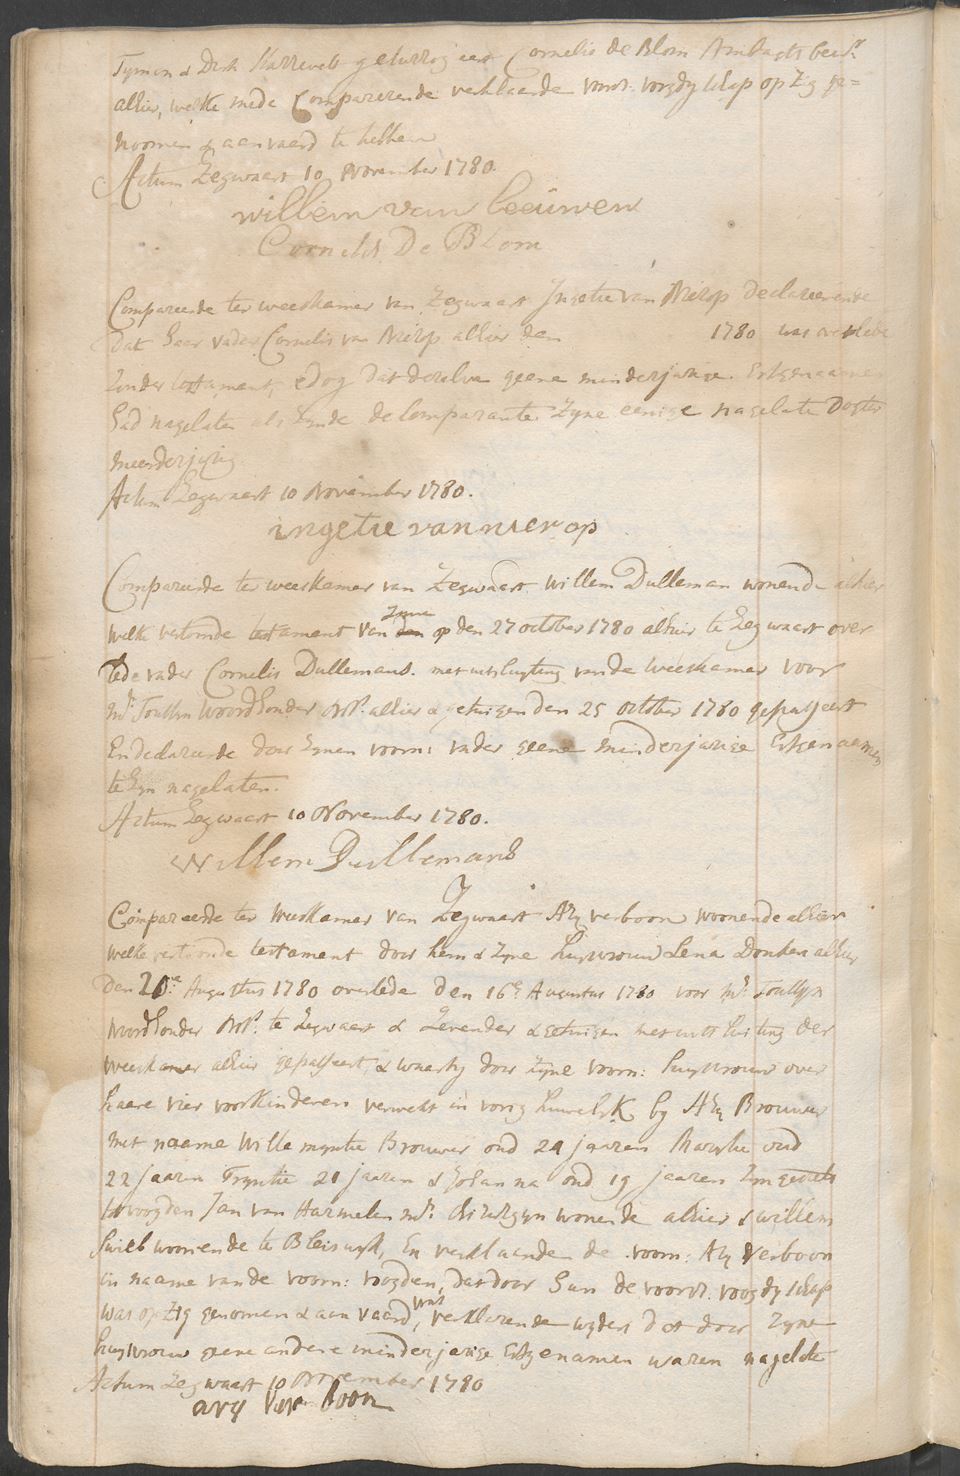 Tymon & Dirk Karreveld geburrog eert Cornelis de Blom Ambagts bew.r
alhier, welke mede Comparerende verklaarde voors. voogdyschap op Zig ge=
noomen & aanvaard te hebben
Actum Zegwaart 10 November 1780.
willem van leeuwen
Cornelis De Blom
Compareerde ter weeskamer van Zegwaart Ingetie van Nierop declareerende
dat haar vader Cornelis van Nierop alhier den 1780 was overlede
zonder testament, edog dat deselve geene minderjarige Erfgenaamen
had nagelaten als zynde de Comparante Zyne eenige nagelate Dogter
meerderjarig
Actum Zegwaart 10 November 1780.
ingetie van nierop
Compareerde ter weeskamer van Zegwaart Willem Dulleman wonende alhier
welke vertoonde testament van zyne op den 27 october 1780 alhier te Zegwaart over
lede vader Cornelis Dullemans. met uitsluyting van de weeskamer voor
Mr. Toussyn Noordhonder Not. alhier & getuigen den 25 october 1780 gepasseert
En declareerde door zynen voorn: vader geene minderjarige Erfgenaemen
te Zyn nagelaten.
Actum Zegwaart 10 November 1780.
Willem Dullemans
Compareerde ter Weeskamer van Zegwaart Ary verboon woonende alhier
welke vertoonde testament door hem & Zyne huysvrouw Lena Donker alhier
den 20.e Augustus 1780 overlede den 16e Augustus 1780 voor Mr. Toussyn
Noordhonder Not. te Zegwaart & Zevender & getuigen met uitsluiting der
weeskamer alhier gepasseert, & waarby door Zyne voorn: huysvrouw over
haare vier voorkinderen verwekt in vorig huwelyk by Ary Brouwer
met naame Willemyntie Brouwer oud 24 jaaren Marytie oud
22 jaaren Tryntie 21 jaaren & Johanna oud 19 jaaren Zyn gestelt
tot voogden Jan van Harmelen Mr. Chirurgyn wonende alhier & willem
Swieb woonende te Bleiswyk, En verklaarden de voorn: Ary Verboon
in naame van de voorn: voogden, dat door hun de voors. voogdyschap
was op Zig genomen & aanvaard, verklarende wyders dat door Zyne
huysvrouw geene andere minderjarige Erfgenamen waren nagelate
Actum Zegwaart 10 November 1780
ary ver boon